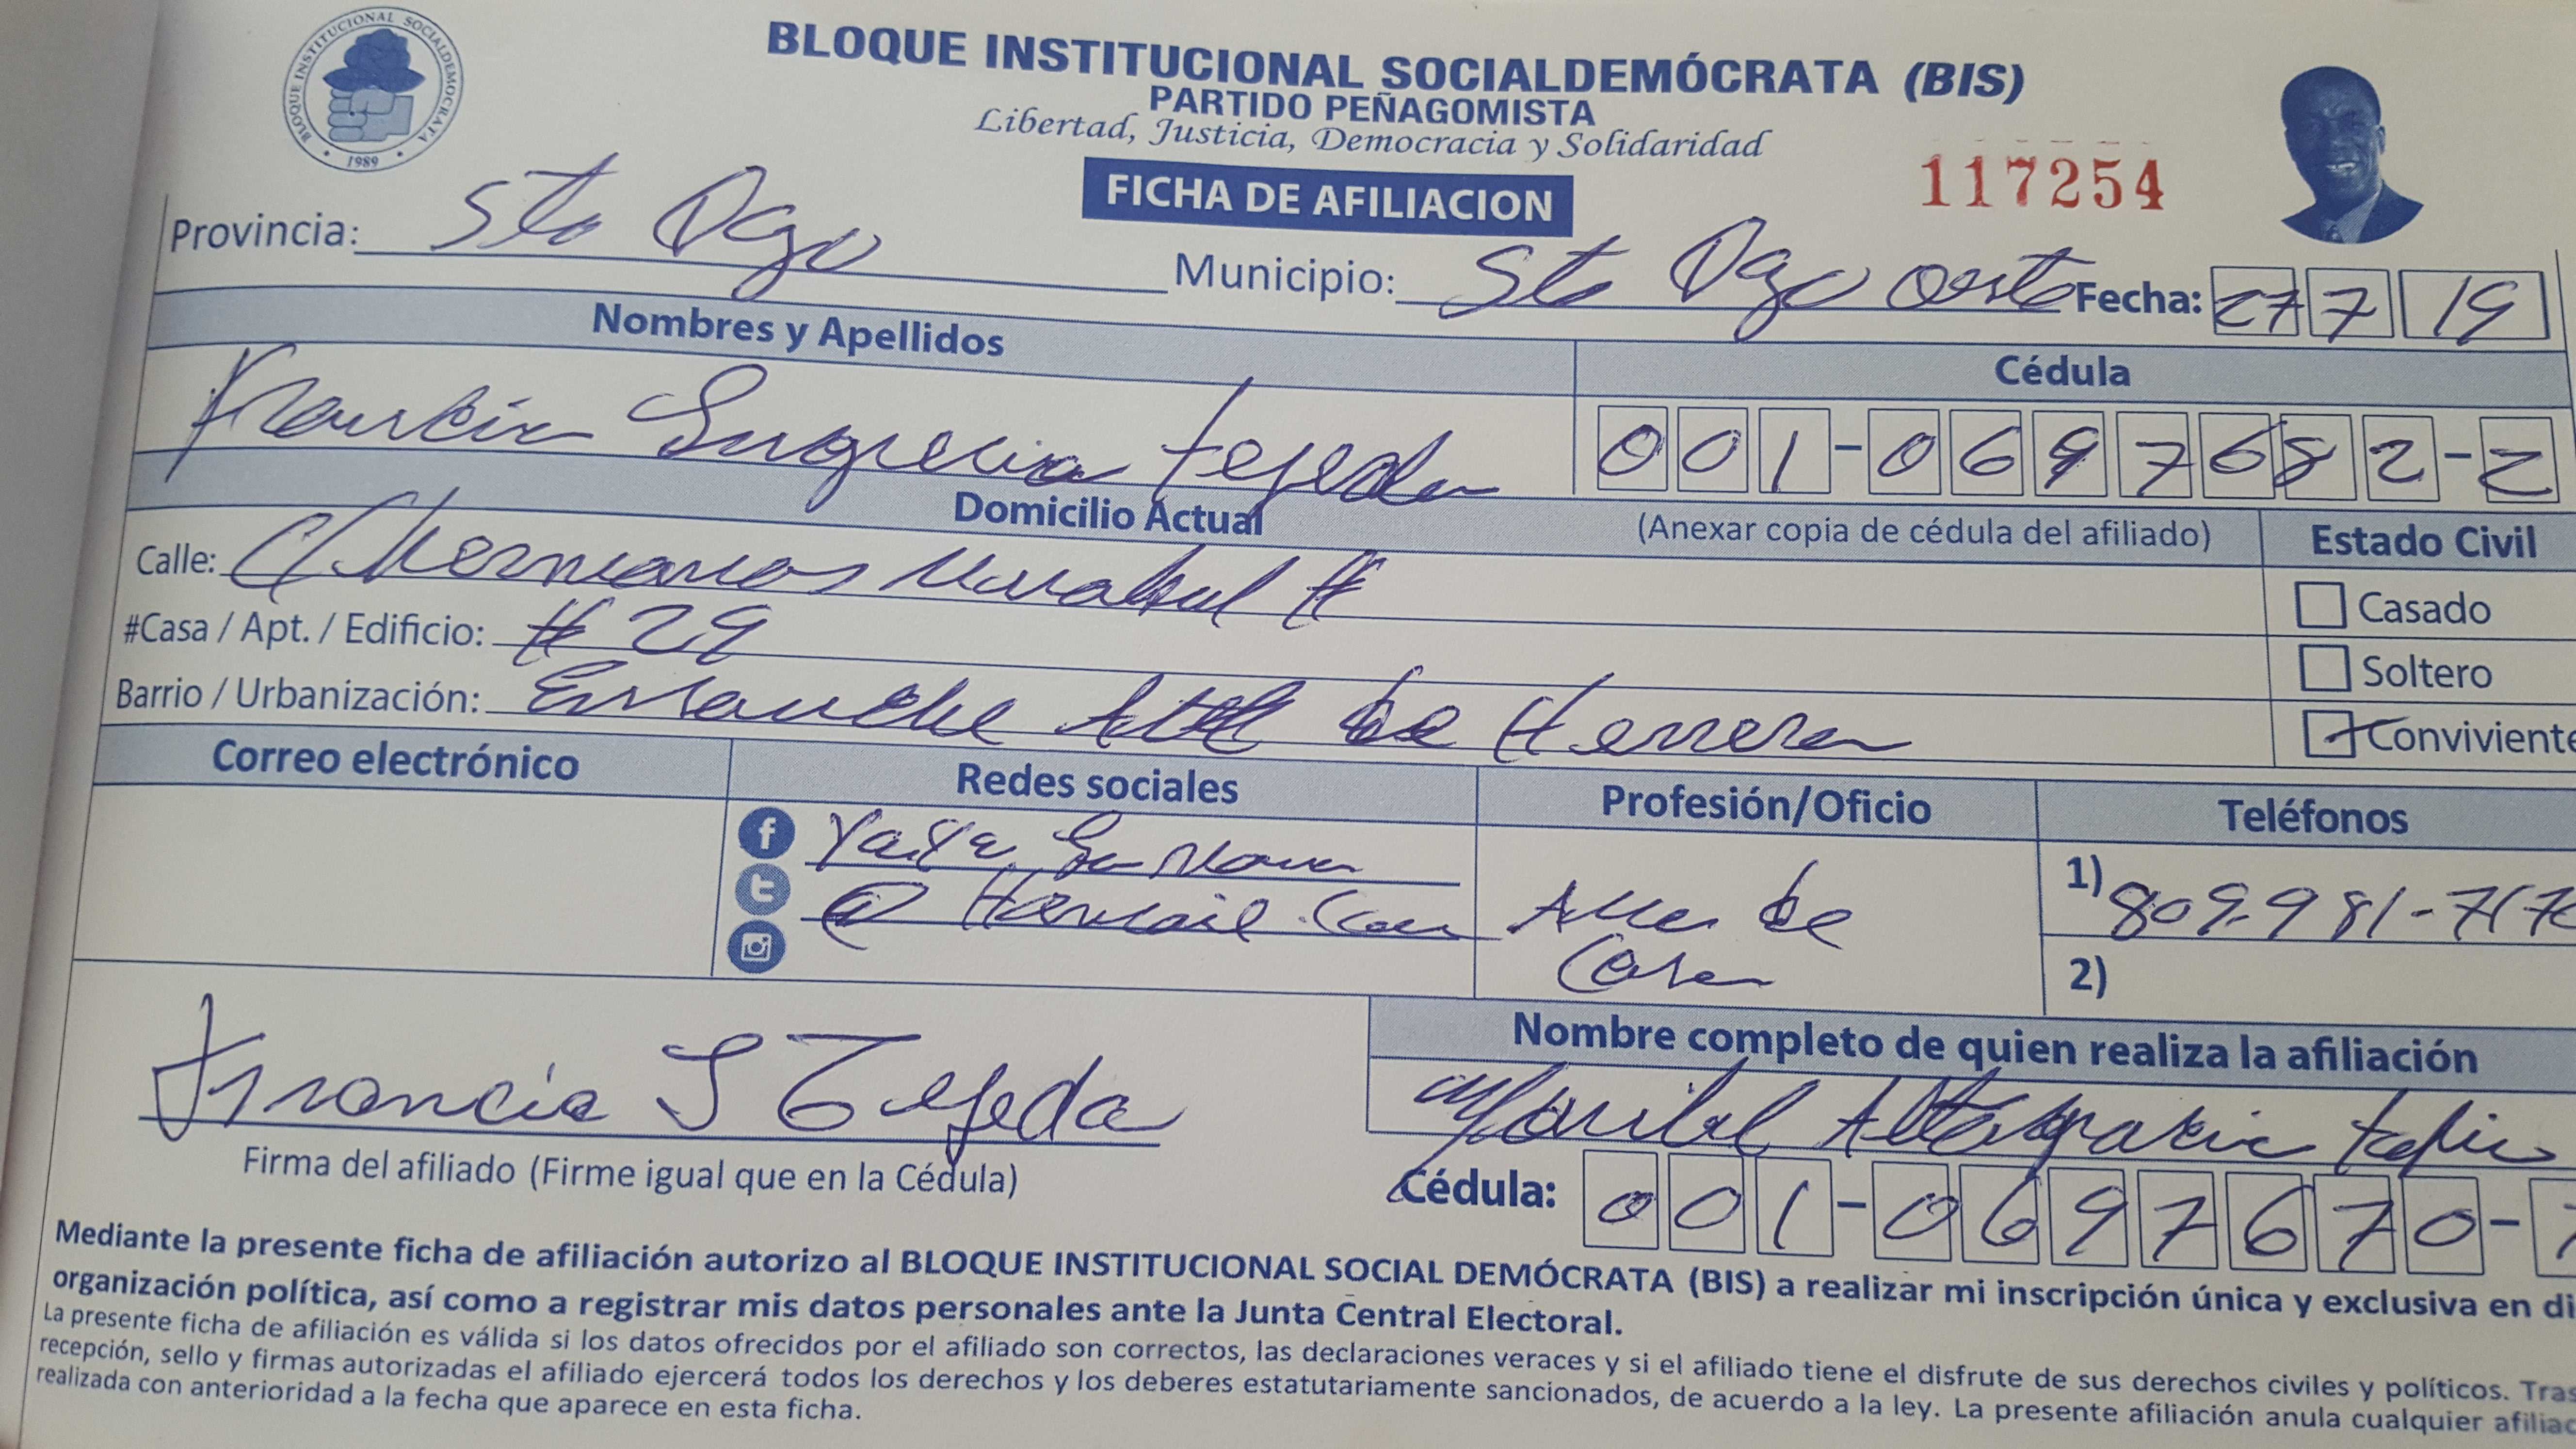 BLOQUE INSTITUCIONAL SOCIALDEMOCRATA
1989
BLOQUE INSTITUCIONAL SOCIALDEMÓCRATA (BIS)
PARTIDO PEÑAGOMISTA
Libertad, Justicia, Democracia y Solidaridad
FICHA DE AFILIACION
117254
Provincia: Sto Dgo Municipio: Sto Dgo oeste Fecha: 27 7 19
Nombres y Apellidos Cédula
Francia Tejeda 001-0697682-2
Domicilio Actual (Anexar copia de cédula del afiliado) Estado Civil
Calle: C/ Hermanas Mirabal #
Casado
#Casa / Apt. / Edificio: # 29
Soltero
Barrio / Urbanización: Ensanche Alt de Herrera
Conviviente
Correo electrónico Redes sociales Profesión/Oficio Teléfonos
f
1) 809-981-71
@ .Com Ama de
Casa
2)
Francia S Tejeda
Firma del afiliado (Firme igual que en la Cédula)
Nombre completo de quien realiza la afiliación
Maribel Altagracia
Cédula: 001-0697670-
Mediante la presente ficha de afiliación autorizo al BLOQUE INSTITUCIONAL SOCIAL DEMÓCRATA (BIS) a realizar mi inscripción única y exclusiva en di
organización política, así como a registrar mis datos personales ante la Junta Central Electoral.
La presente ficha de afiliación es válida si los datos ofrecidos por el afiliado son correctos, las declaraciones veraces y si el afiliado tiene el disfrute de sus derechos civiles y políticos. Tras
recepción, sello y firmas autorizadas el afiliado ejercerá todos los derechos y los deberes estatutariamente sancionados, de acuerdo a la ley. La presente afiliación anula cualquier afiliac
realizada con anterioridad a la fecha que aparece en esta ficha.